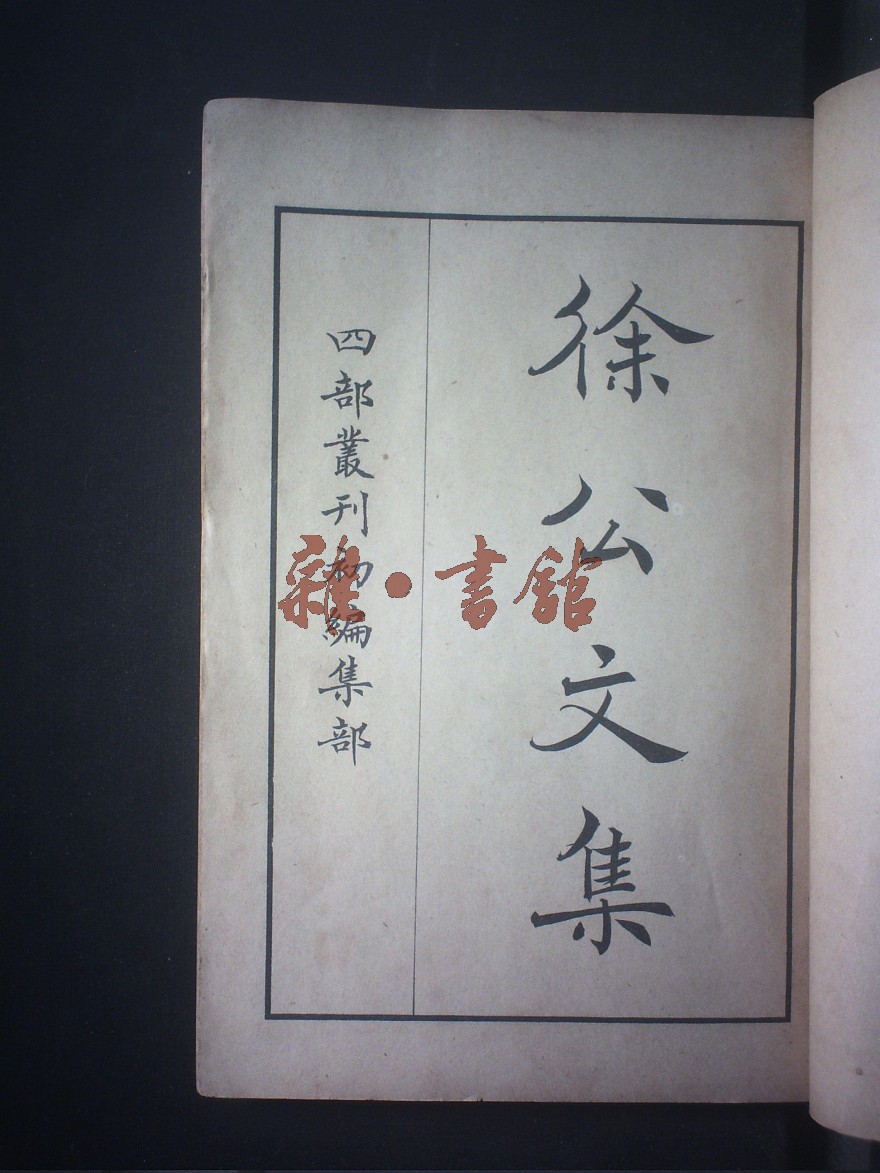 徐公文集
四部叢刊初編集部
雜·書館